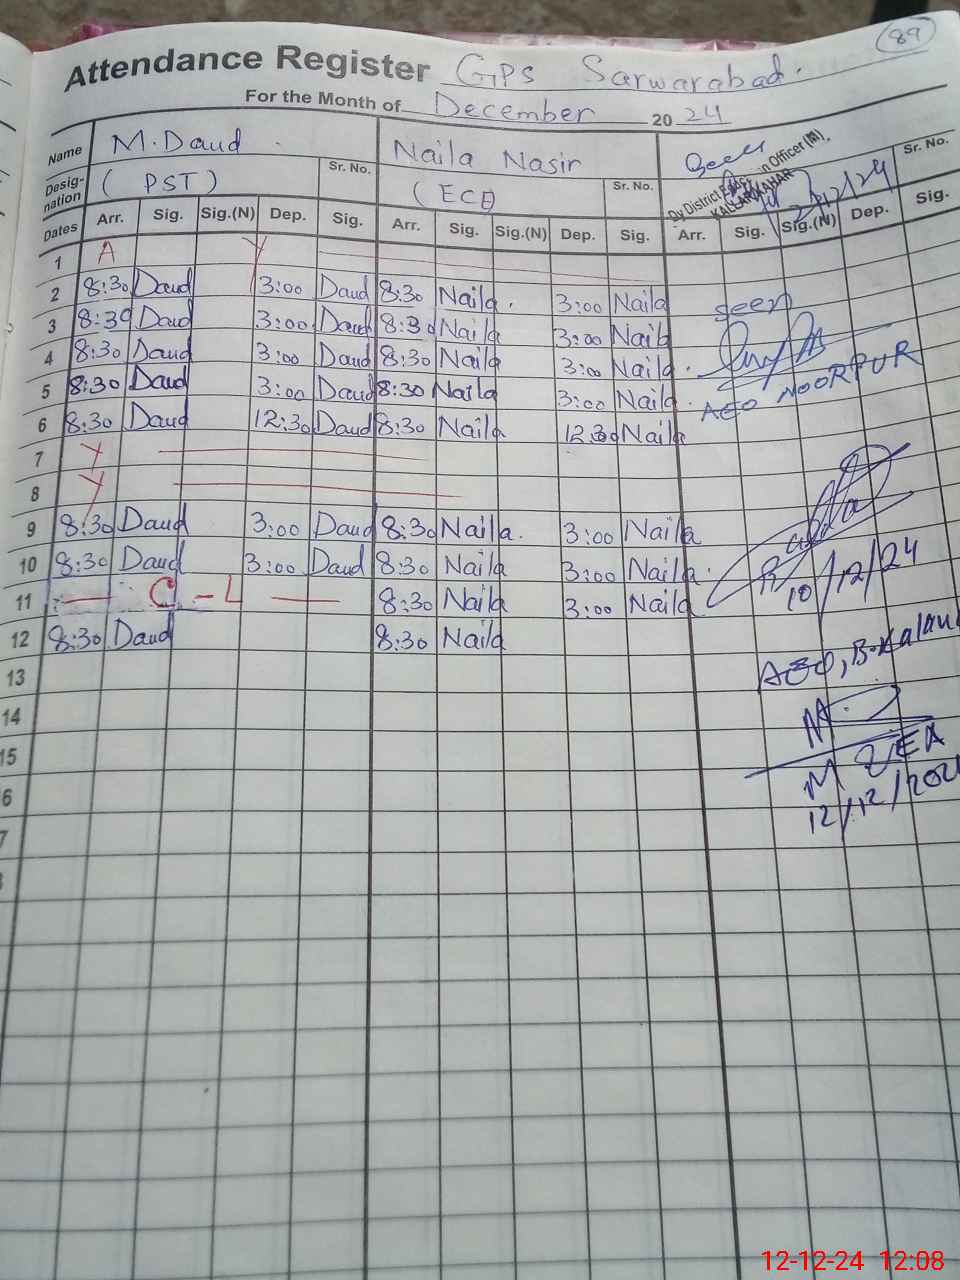 89
Attendance Register GPS Sarwarabad.
For the Month of December 2024
Name M. Daud Naila Nasir Seen
Desig-nation (PST) Sr. No. (ECE) Sr. No. Dy District Officer (M), KALLARKAHAR /12/24 Sr. No.
Dates Arr. Sig. Sig.(N) Dep. Sig. Arr. Sig. Sig.(N) Dep. Sig. Arr. Sig. Sig.(N) Dep. Sig.
1 A Y
2 8:30 Daud 3:00 Daud 8:30 Naila. 3:00 Naila
3 8:30 Daud 3:00 Daud 8:30 Naila 3:00 Naila
seen
4 8:30 Daud 3:00 Daud 8:30 Naila 3:00 Naila.
5 8:30 Daud 3:00 Daud 8:30 Naila 3:00 Naila.
AEO NOORPUR
6 8:30 Daud 12:30 Daud 8:30 Naila 12:30 Naila
7 Y
8 Y
9 8:30 Daud 3:00 Daud 8:30 Naila. 3:00 Naila
10 8:30 Daud 3:00 Daud 8:30 Naila 3:00 Naila.
10/12/24
11 — C - L — 8:30 Naila 3:00 Naila
12 8:30 Daud 8:30 Naila
AEO, B.Kalan
13
14
15
M EA
6
12/12/202
7
12-12-24 12:08